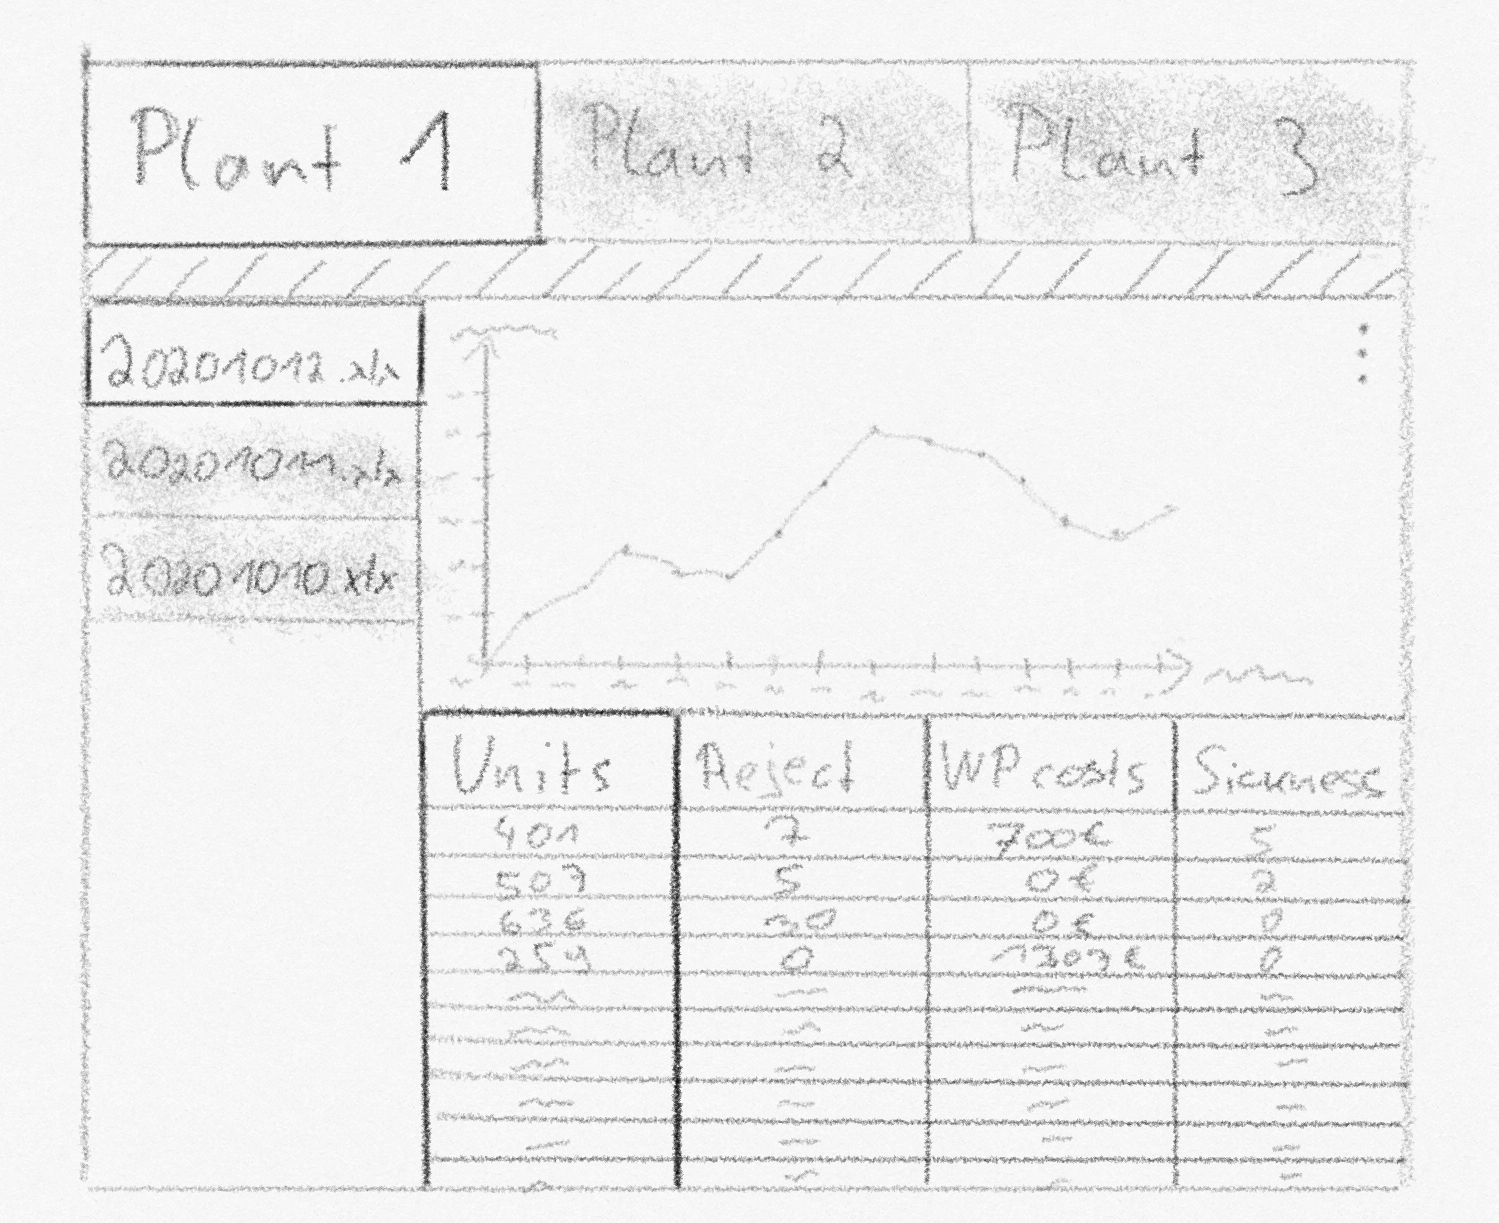 Plant 1 Plant 2 Plant 3
20201012.xlx
20201011.xlx
20201010.xlx
Units Reject WP costs Sickness
401 7 700€ 5
507 5 0€ 2
636 30 0€ 0
259 0 1303€ 0